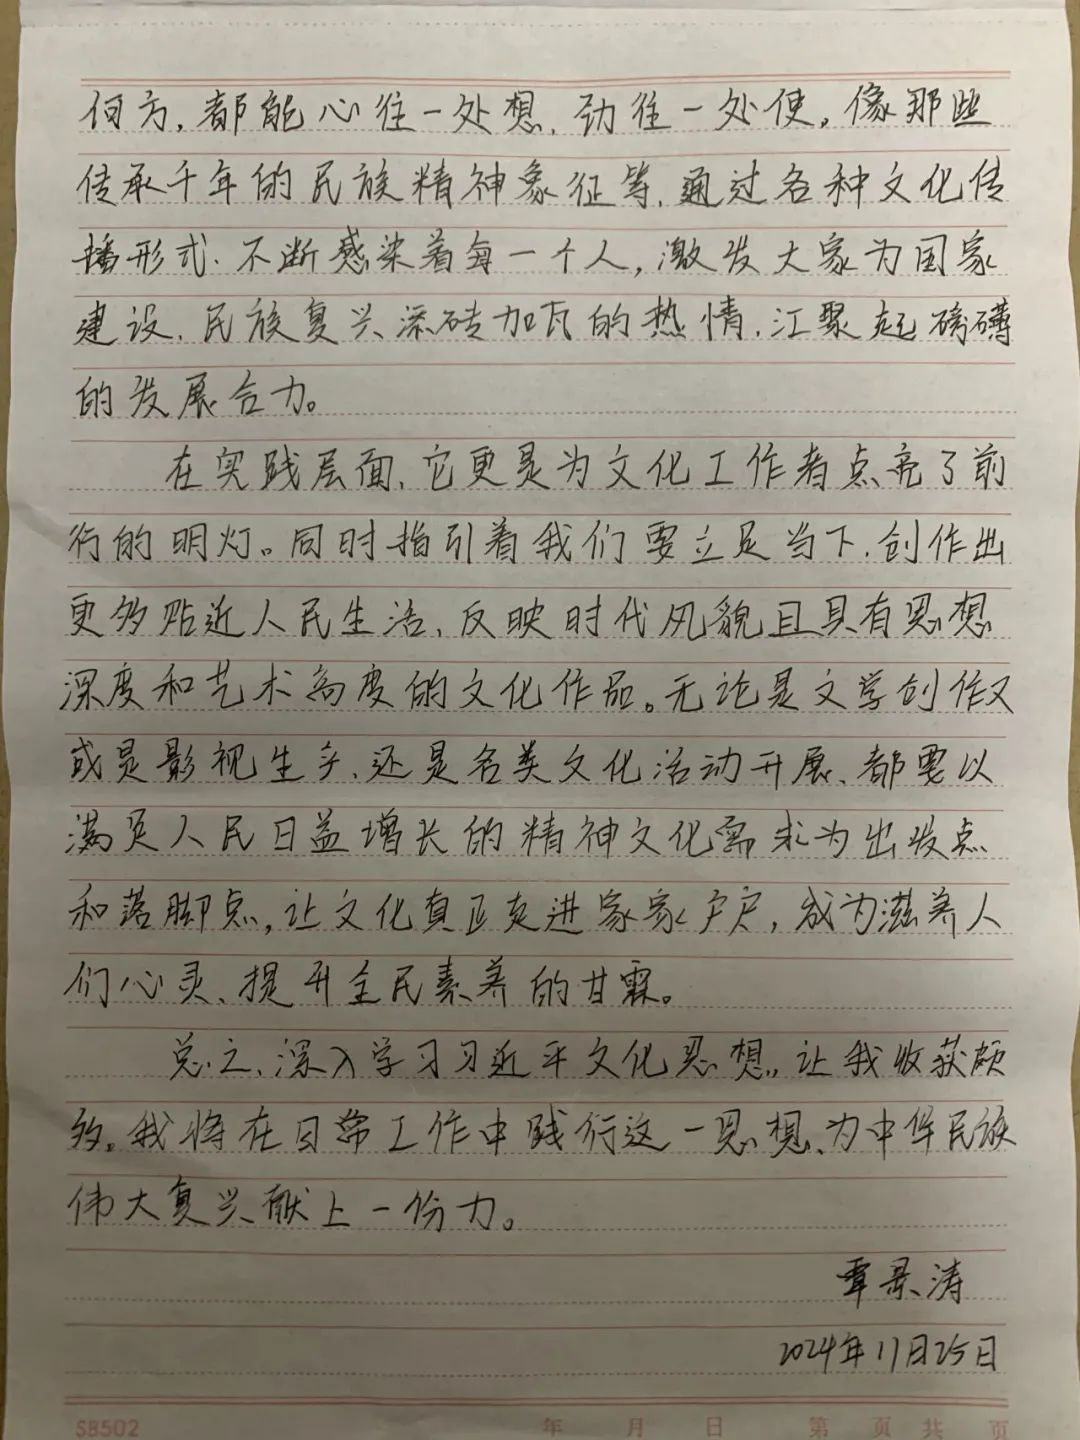 何方,都能心往一处想,劲往一处使,像那些
传承千年的民族精神象征等,通过各种文化传
播形式,不断感染着每一个人,激发大家为国家
建设,民族复兴添砖加瓦的热情,汇聚起磅礴
的发展合力。
在实践层面,它更是为文化工作者点亮了前
行的明灯。同时指引着我们要立足当下,创作出
更多贴近人民生活、反映时代风貌且具有思想
深度和艺术高度的文化作品。无论是文学创作又
或是影视生产,还是各类文化活动开展、都要以
满足人民日益增长的精神文化需求为出发点
和落脚点,让文化真正走进家家户户,成为滋养人
们心灵、提升全民素养的甘霖。
总之,深入学习习近平文化思想,让我收获颇
多。我将在日常工作中践行这一思想、为中华民族
伟大复兴献上一份力。
覃景涛
2024年11月25日
S8502 年 月 日 第 页 共 页